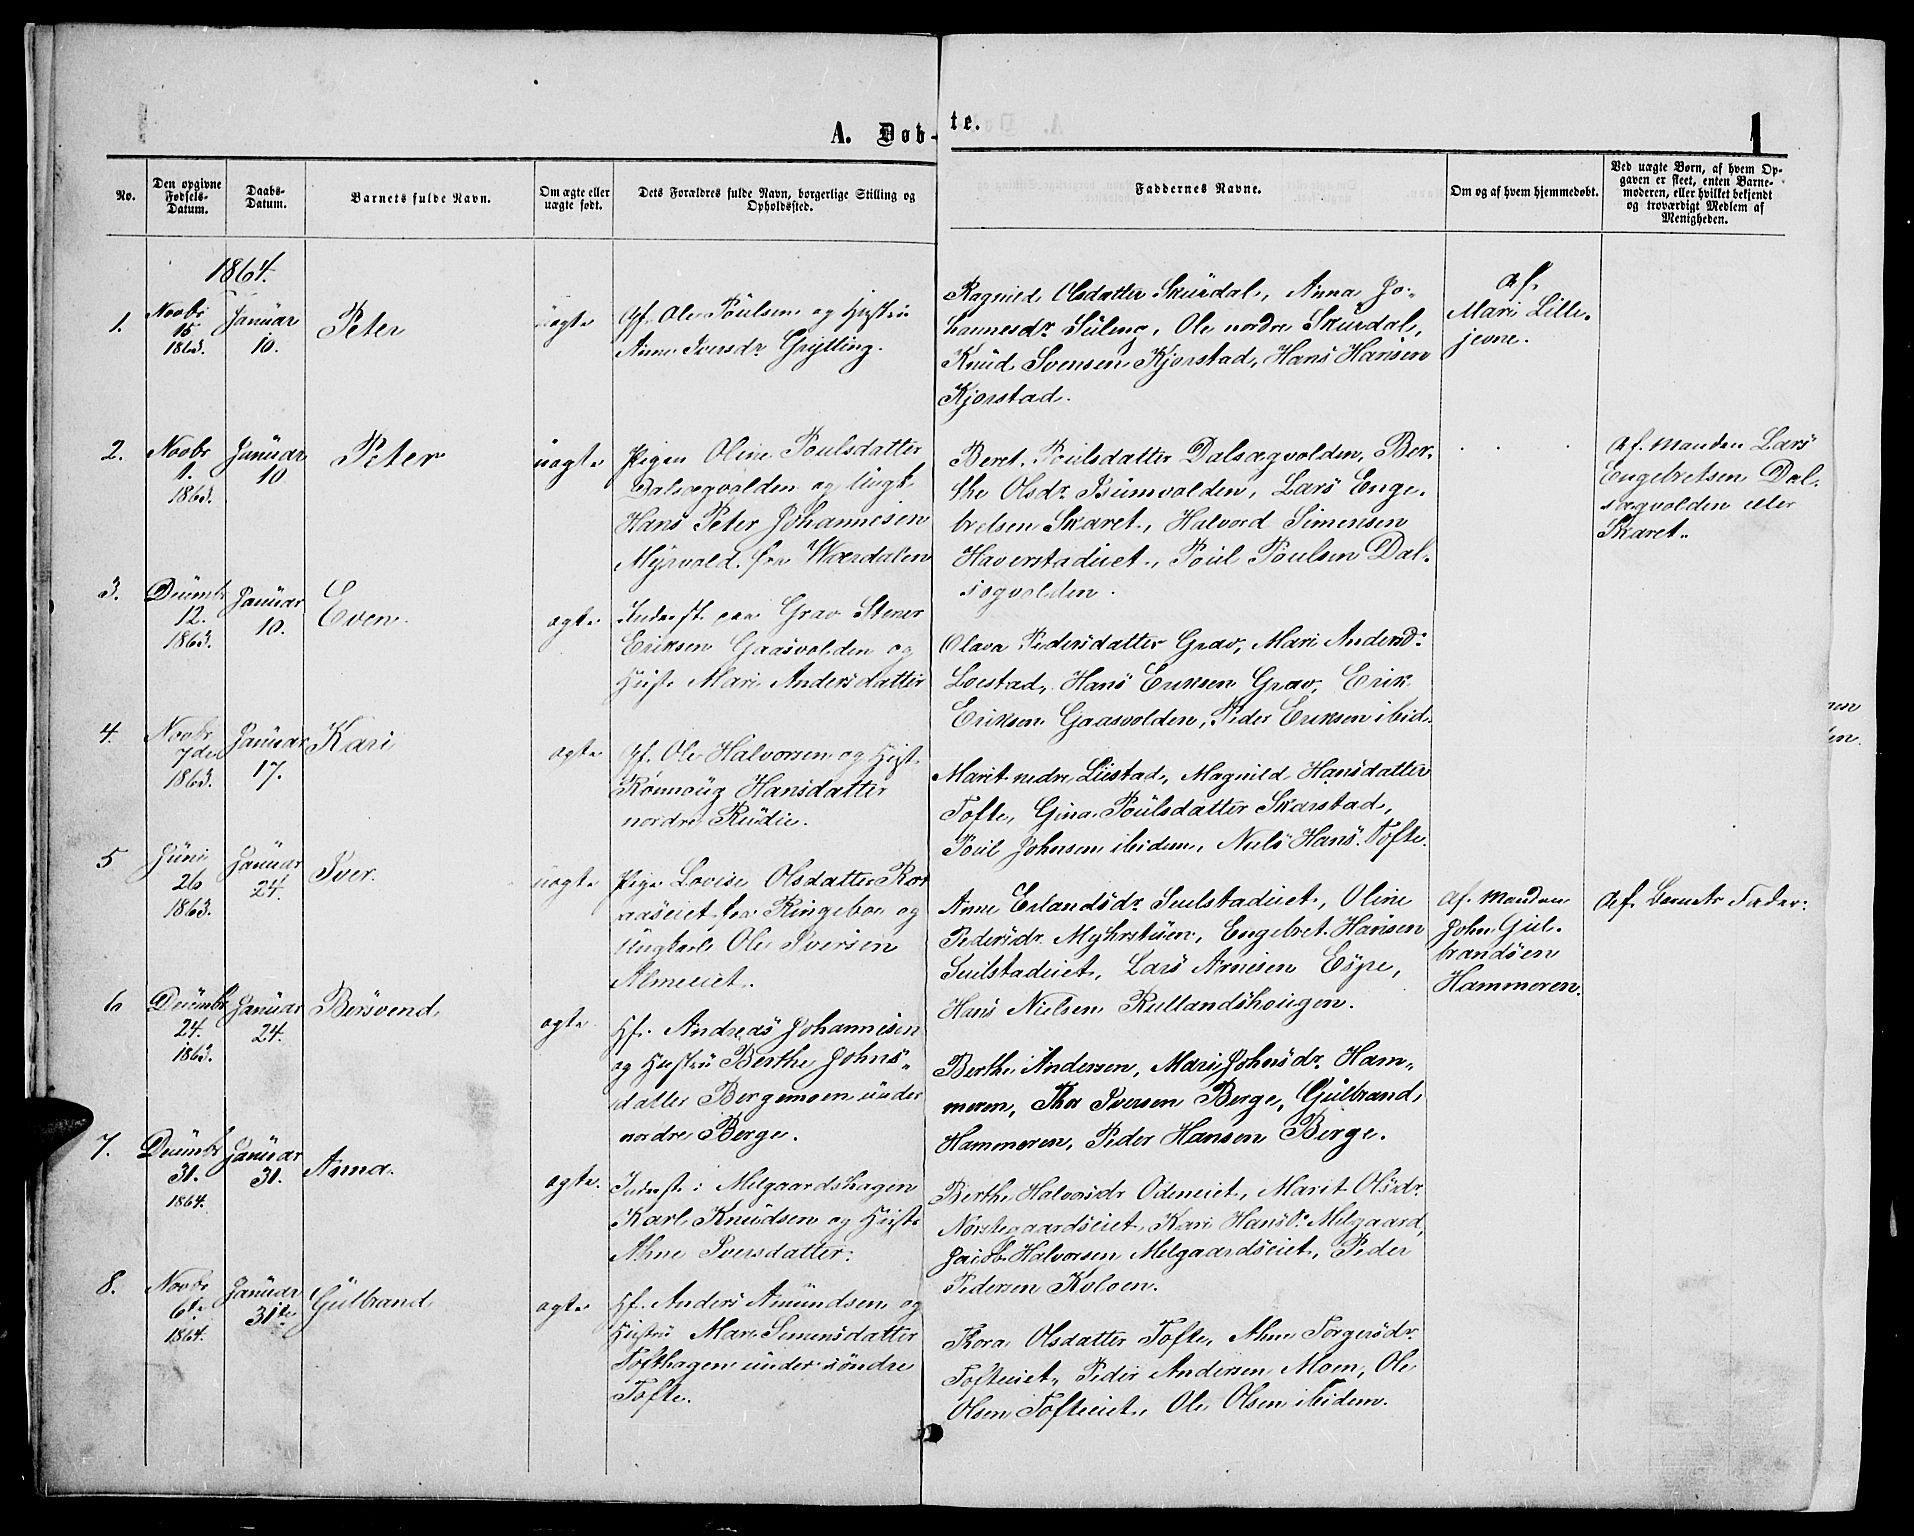 A. Døb-
te.
1
No.
Den opgivne
Fødsels-
Datum.
Daabs-
Datum.
Barnets fulde Navn.
Om ægte eller
uægte født.
Dets Forældres fulde Navn, borgerlige Stilling og
Opholdssted.
Faddernes Navne.
Om og af hvem hjemmedøbt.
Ved uægte Børn, af hvem Op-
gaven er skeet, enten Barne-
moderen, eller hvilket bekjendt
og troværdigt Medlem af
Menigheden.
1864.
1.
Novbr
15
1863.
Januar
10.
Peter
uægte
Gf. Ole Poulsen og Hustru
Anne Iversdr Grytting.
Ragnild Olsdatter Skurdal, Anna Jo-
hannesdr Suleng, Ole nordre Skurdal,
Knud Svensen Kjorstad, Hans Hansen
Kjorstad.
af
Mari Lille-
jevne.
2.
Novbr
1.
1863.
Januar
10
Peter
uægte
Pigen Oline Poulsdatter
Dalsægvolden og Ungk.
Hans Peter Johannesen
Myrvold fra Wærdalen
Beret Poulsdatter Dalsægvolden, Ber-
the Olsdr Bumvolden, Lars Enge-
bretsen Skaret, Halvord Simensen
Haverstadeiet, Poul Poulsen Dal-
sægvolden.
Af Manden Lars
Engebretsen Dal-
sægvolden eller
Skaret.
3.
Decembr
12.
1863.
Januar
10.
Even
ægte
Inderst paa Grav Stener
Eriksen Gaasvolden og
Hust. Mari Andersdatter
Olava Pedersdatter Grav, Mari Andersd.
Loestad, Hans Eriksen Grav, Erik
Eriksen Gaasvolden, Peder Eriksen ibid.
4.
Novbr
7de
1863.
Januar
17.
Kari
ægte
Gf. Ole Halvorsen og Hust.
Rønnoug Hansdatter
nordre Rudie.
Marit nedre Lüstad, Magnild Hansdatter
Tofte, Gina Poulsdatter Skarstad,
Poul Johnsen ibidem, Niels Hans. Tofte.
5
Juni
26
1863.
Januar
24.
Iver.
uægte
Pige Lovise Olsdatter Kor
aaseiet fra Ringeboe og
Ungkarl Ole Iversen
Almeeiet.
Anne Erlandsdr Suulstadeiet, Oline
Pedersdr Myhrstuen, Engebret Hansen
Suilstadeiet, Lars Arnesen Espe,
Hans Nielsen Rullandshougen.
Af Manden
John Gul-
brandsen
Hammeren.
Af Barnets Fader.
6
Decembr
24.
1863.
Januar
24.
Bersvend
ægte
Hf. Andreas Johannesen
og Hustru Berthe Johns-
datter Bergemoen under
nordre Berge.
Berthe Andersen, Mari Johnsdr Ham-
meren, Thor Iversen Berge, Gulbrand
Hammeren, Peder Hansen Berge.
7.
Decembr
31.
1864.
Januar
31.
Anna
ægte.
Inderst i Melgaardshagen
Karl Knudsen og Hust.
Ahne Iversdatter.
Berthe Halvorsdr Odeneiet, Marit Olsdr
Norstegaardseiet, Kari Hansd. Melgaard,
Jacob Halvorsen Melgaardseiet, Peder
Pedersen Koloen.
8.
Novbr
6te
1864.
Januar
31te
Gulbrand
ægte
Hf. Anders Amundsen og
Hustru Mari Simensdatter
Tofthagen under søndre
Tofte.
Thora Olsdatter Tofte, Ahne Torgersdr
Tofteeiet, Peder Andersen Moen, Ole
Olsen Tofteeiet, Ole Olsen ibidem.